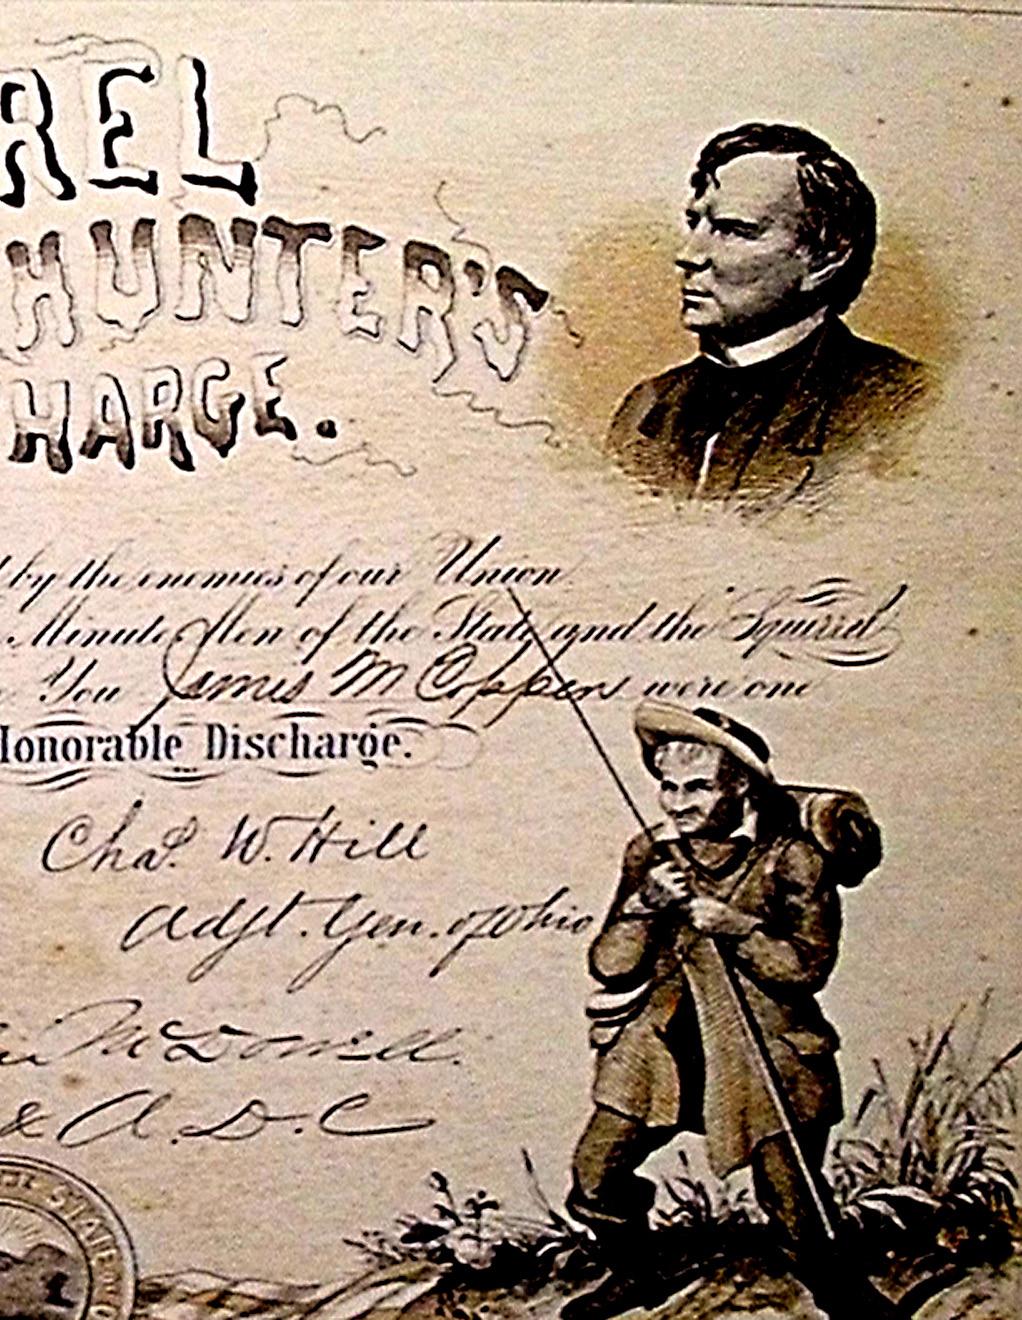 REL
HUNTER'S
HARGE.
by the enemies of our Union
Minute Men of the State, and the Squirrel
You James M Coppen were one
Honorable Discharge.
Chas. W. Hill
Adjt. Gen. of Ohio
McDowell.
& A.D.C
THE STATE O